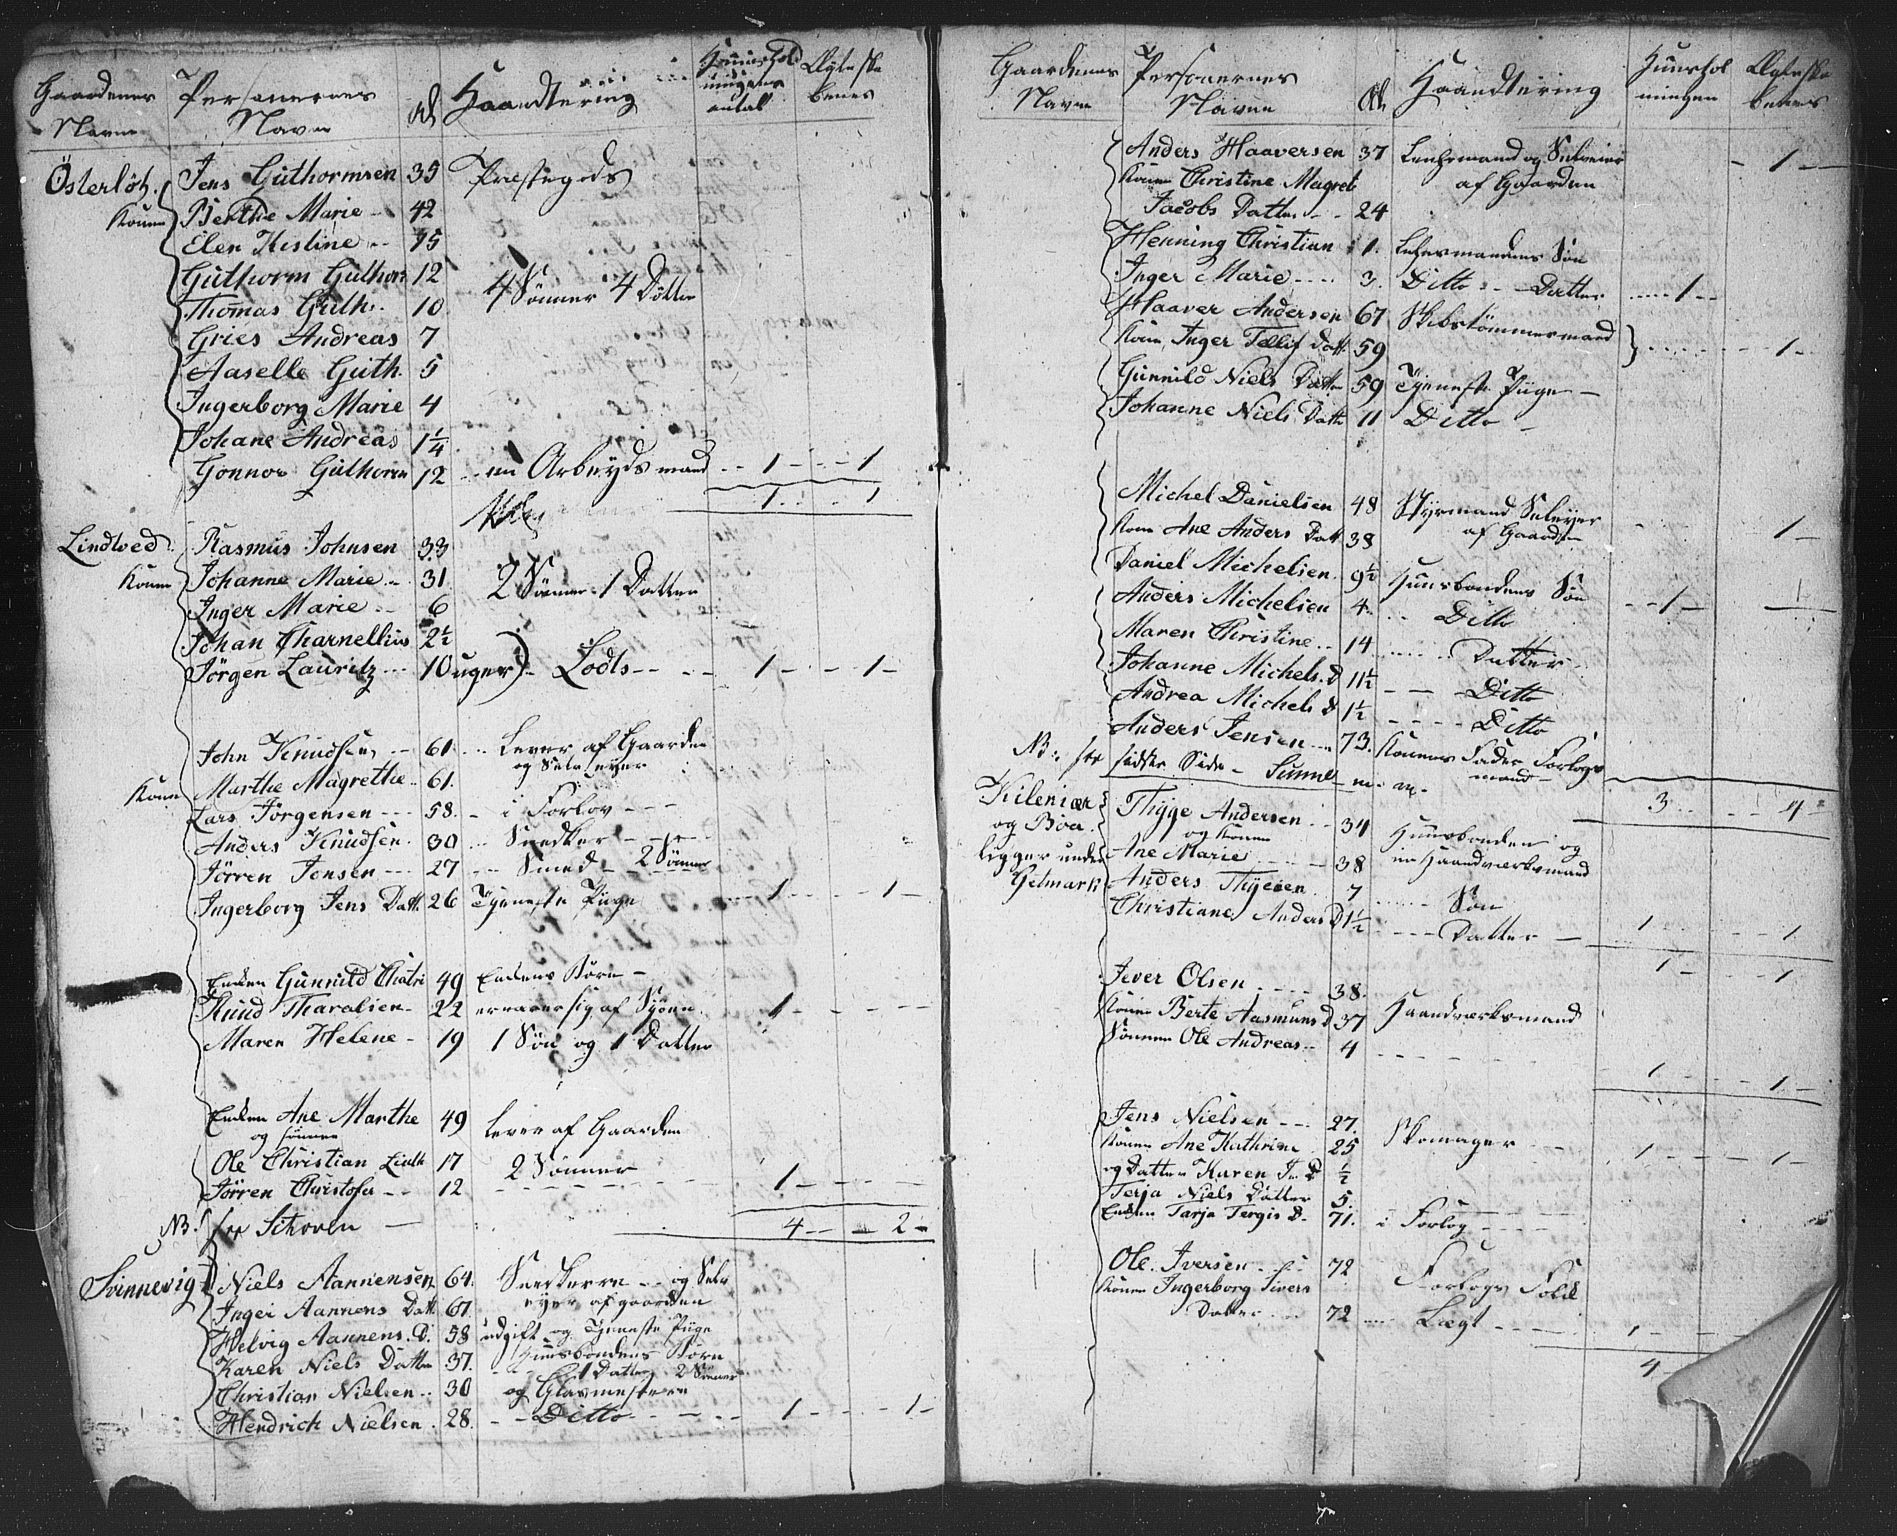 Gaardenes Navne
Personernes Navne
Haandtering
Huusholdningens antal
Österlöt. Jens Guthormsen 35 Præstegods
Konen Berthe Marie 42
Elen Kistine 15
Guthorm Guthor 12 4 Sønner 4 Døtter
Thomas Guth. 10
Gries Andreas 7
Aaselle Guth 5
Ingerborg Marie 4
Johane Andreas 1 1/4
Gonnor Guthorm 12 en Arbeydsmand 1 1
1 1
Lindtved Rasmus Johnsen 33
Konen Johanne Marie 31 2 Sønner 1 Datter
Inger Marie 6
Johan Charnellius 2 1/2
Jörgen Lauritz 10 uger) Lodts 1 1
John Knudsen 61 Lever af Gaarden
og Selv eyer
Kone Marthe Magrethe 61
Lars Jörgensen 58 i Forlov
Anders Knudsen 30 Snedker
Jörren Jensen 27 Smed 2 Sønner
Ingerborg Jens Datt. 26 Tyeneste Piige 1 1
Enken Gunnild Chatri 49 Enkens Børn
Knud Tharalsen 22 ernærer sig af Syöen 1
Maren Helene 19 1 Søn og 1 Datter
Enken Ane Marthe 49 Lever af Gaarden
og sønner
Ole Christian 17 2 Sønner
Jörren Christofer 12 1
NB: see Schoven 4 2
Svinnevig Niels Aannensen 64 Snedkere og Selv
eyer af gaarden
Inger Aannens Datt. 67
Helvig Aannens. D. 58 udgift og Tyeneste Piige
Karen Niels Datter 37 Huusbondens Børn
1 Datter 2 Sønner
Christian Nielsen 30 og Glasmestere
Hendrich Nielsen 28 Ditto 1 1
Gaardenes Navne
Personernes Navne
Haandtering
Huusholdningen
Anders Haaversen 37 Lenhsmand og Selveier
Konen Christine Magret af Gaarden 1
Jacobs Datter 24
Henning Christian 1 Lehnsmandens Søn
Inger Marie 3 Ditto Datter 1
Haaver Andersen 67 Skibstömmermand
Konen Inger Tellef Datt 59 1
Gunnild Niels Datter 59 Tyeneste Piige
Johanne Niels Datt 11 Ditto
Michel Danielsen 48 Styrmand Seleyer
af Gaarden 1
Kone Ane Anders Datt 38
Daniel Michelsen 9 1/2 Huusbondens Søn
Anders Michelsen 4 Ditto 1 1
Maren Christine 14 Datter
Johanne Michels. D 11 1/2 Ditto
Andrea Michels D 1 1/2 Ditto
Anders Jensen 73 Konens Fader Forlogs
mand
NB: see sidste Side Summe 3 4
Kileniær Thyge Andersen 34 Huusbonden og
og Boer og Konen en Haandværksmand
Ligger under Ane Marie 38
Getmark Anders Thyesen 7 Søn
Christiane Anders D 1 1/2 Datter 1 1
1 1
Jever Olsen 38
Konen Berte Aasmuns D 37 Haandværksmand
Sønnen Ole Andreas 4
1 1
Jens Nielsen 27
Konen Ane Kathrine 25 Skomager 1 1
og Datter Karen J. D 1/2
Terja Niels Datter 5
Enken Tarja Tergis D. 71 i Forlog
Ole Iversen 72 Forlogs Folk
Konen Ingerborg Sivers
Datter 72 Lægt 1
4